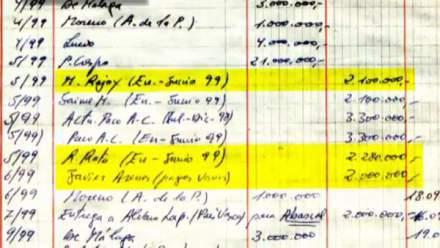 4/99 De Málaga 5.000.000,-
4/99 Moreno (A. de la P.) 1.000.000,-
4/99 4.000.000,-
5/99 P. Crespo 21.000.000,-
5/99 M. Rajoy (En.-Junio 99) 2.100.000,-
5/99 Jaime M. (En.- Junio 99) 2.100.000,-
5/99 Acta. Paco A-C. (Jul-Dic-98) 3.300.000,-
5/99) Paco A-C. (En-Junio 99) 3.300.000,-
5/99 R. Rato (En-Junio 99) 2.280.000,-
6/99 Javier Arenas (pagos varios) 2.000.000,-
6/99 Moreno (A. de la P.) 1.000.000 18.0
7/99 Entrega a Lap. (País Vasco) para Abascal 2.000.000,-
9/99 De Málaga 3.000.000 19.0